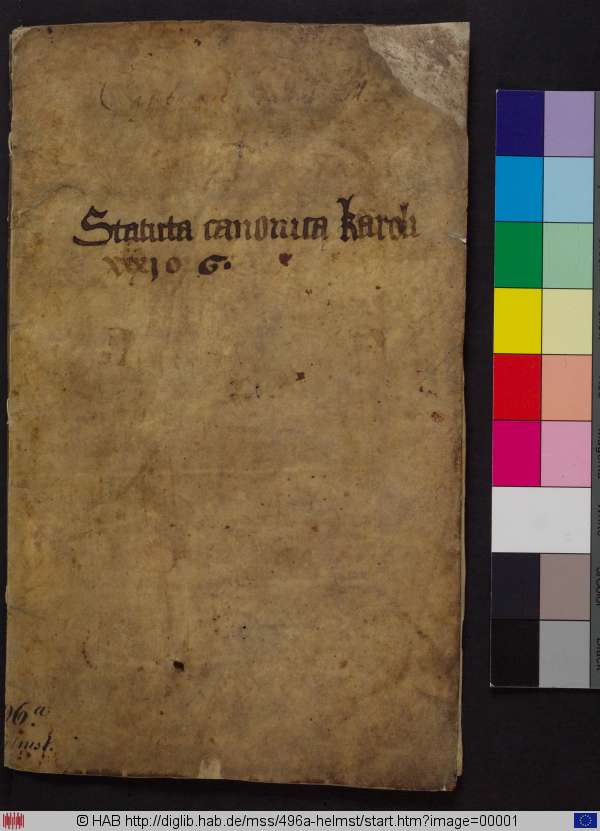 Statuta canonica karoli
xxxj o G.
96.a
lmst.
© HAB http://diglib.hab.de/mss/496a-helmst/start.htm?image=00001